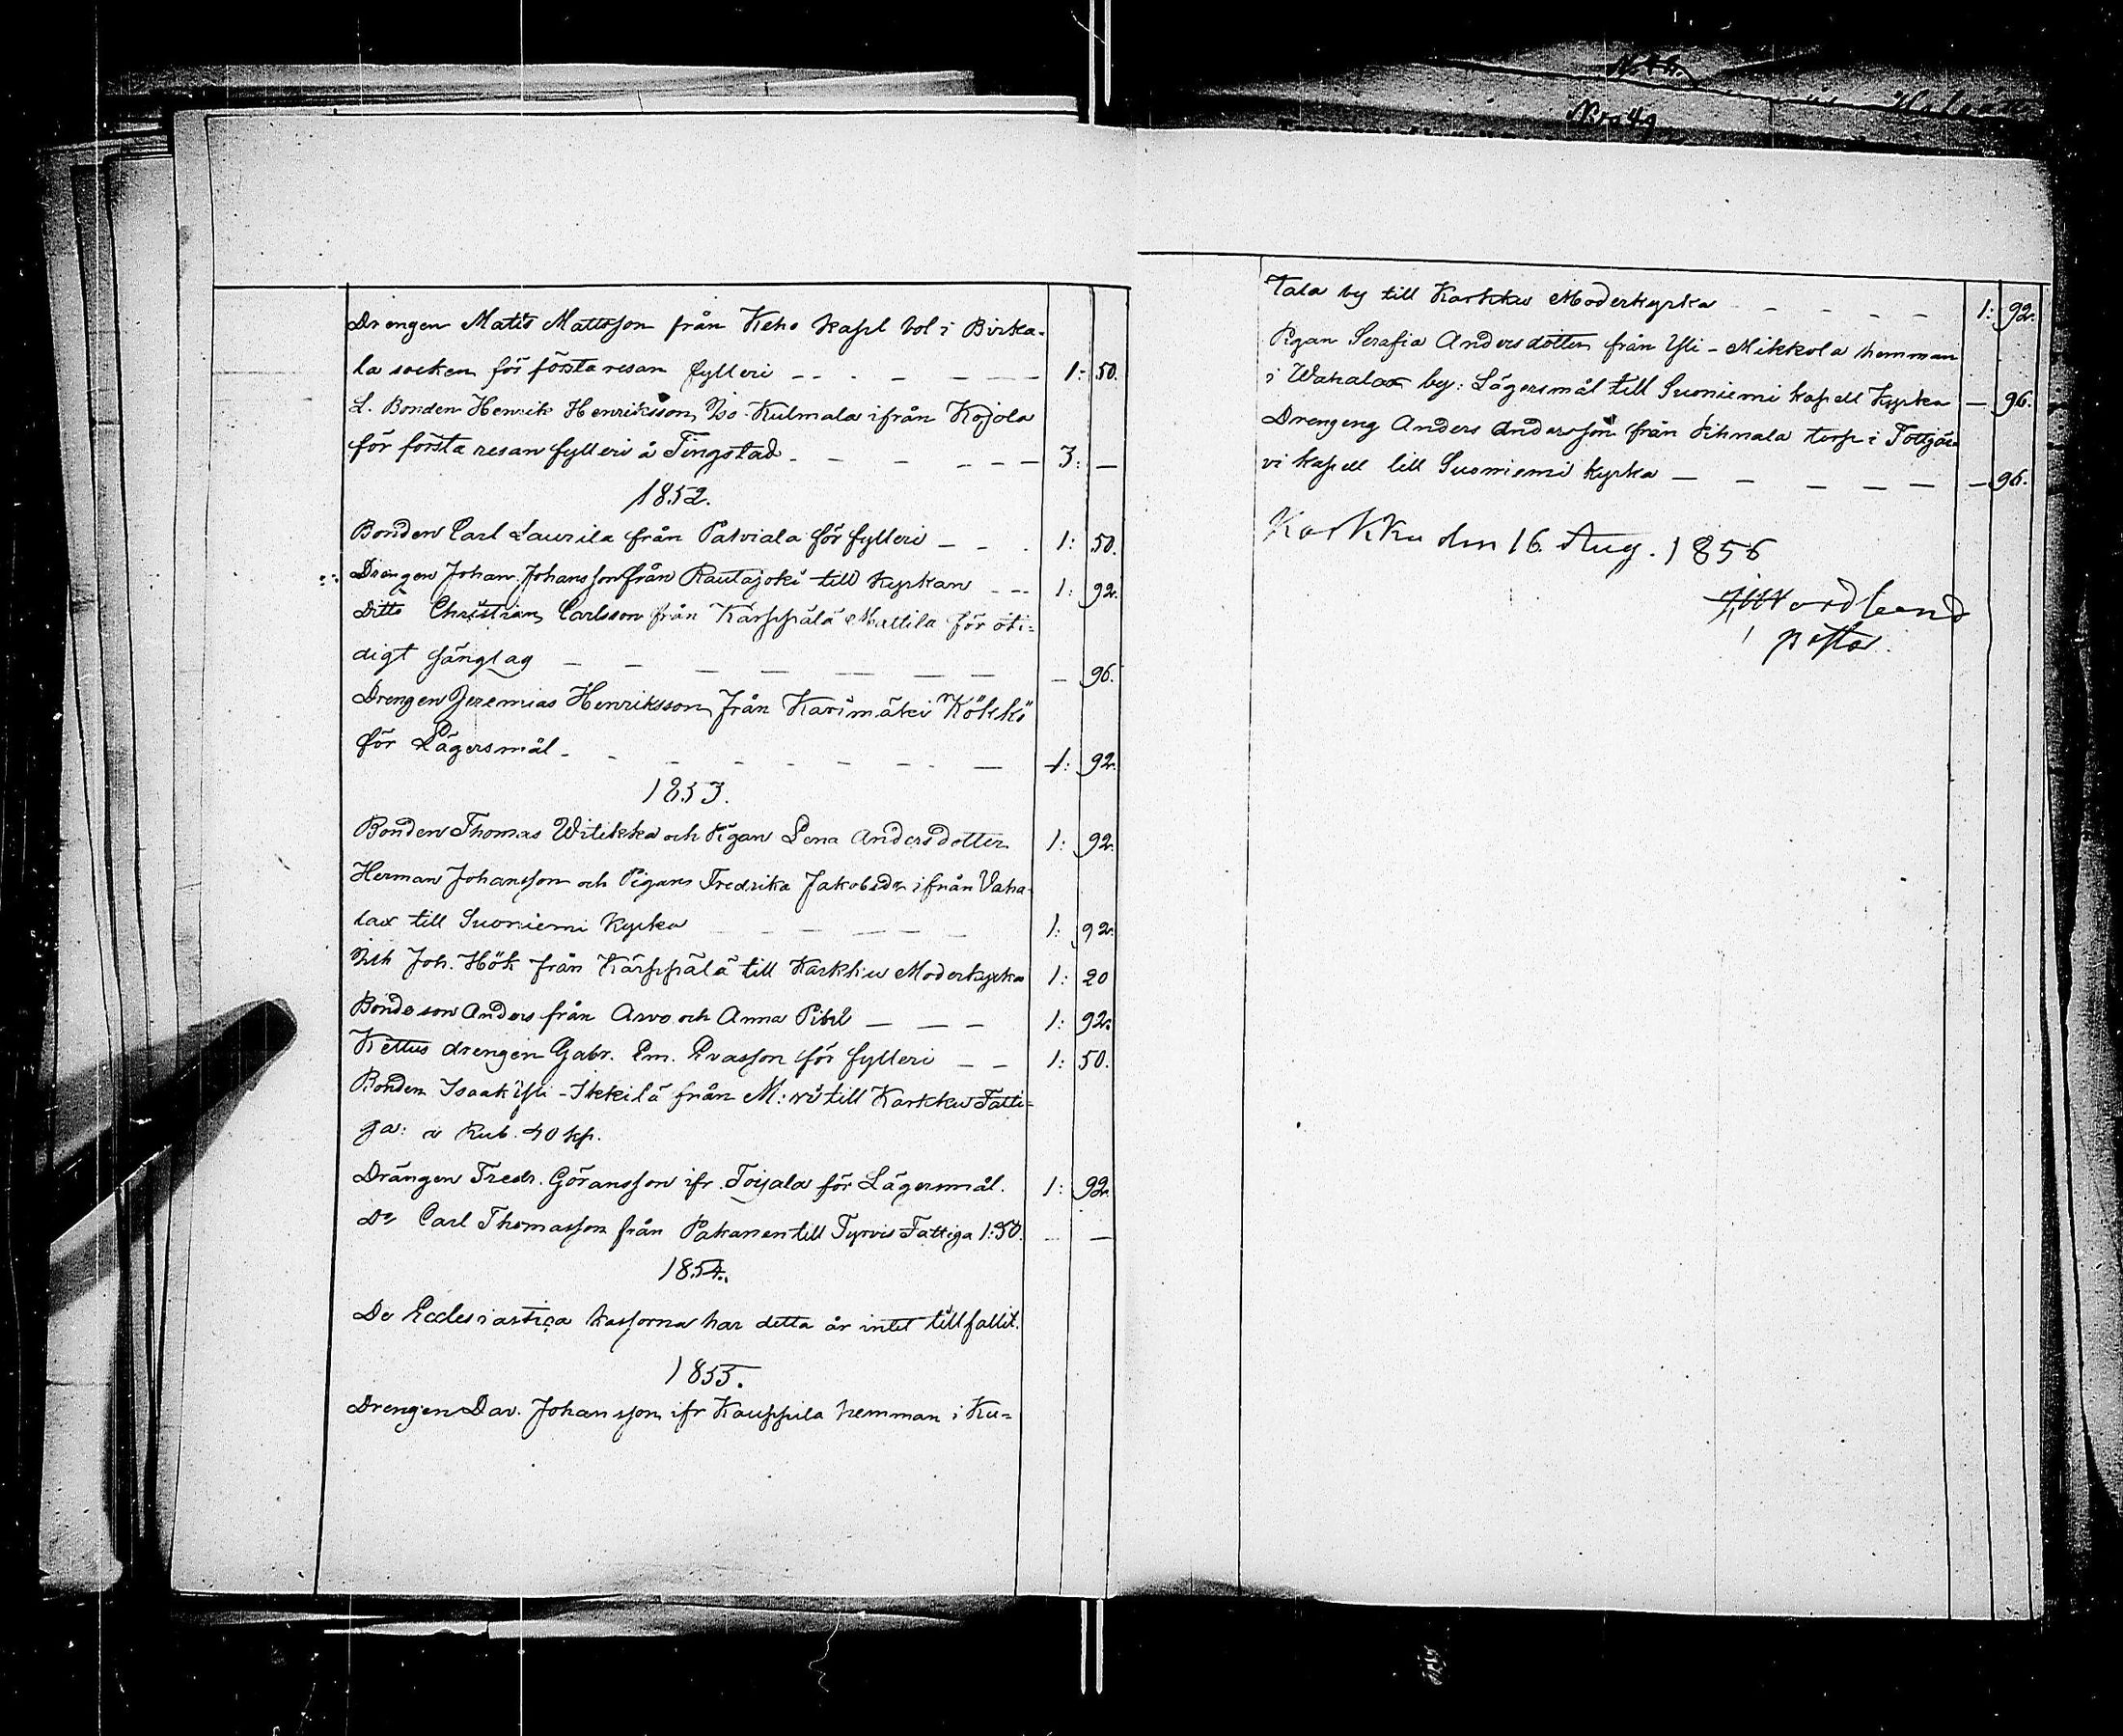 Drengen Matts Mattsson från Keho kapl bol i Birka-
la socken för första resan fylleri 1: 50.
L. Bonden Henrik Henriksson Iso-Kulmala ifrån Kojola
för första resan fylleri å Tingstad 3: —
1852.
Bonden Carl Laurila från Palviala för fylleri 1: 50.
Drengen Johan Johansson från Rautajoki till Kyrkan 1: 92.
Ditto Christian Carlsson från Kärppälä Mattila för oti=
digt sänglag — 96.
Drengen Jeremias Henriksson från Karimäki Kökkö
för Lägersmål 1: 92.
1853.
Bonden Thomas Witikka och Pigan Lena Andersdotter 1: 92.
Herman Johansson och Pigan Fredrika Jakobsdr ifrån Vaha-
lax till Suoniemi Kyrka 1: 92.
Joh. Hök från Kärppälä till Karkku Moderkyrka 1: 20
Bondeson Anders från Arvo och Anna Pihl 1: 92.
Kettus drengen Gabr. Em. Evasson för fylleri 1: 50.
Bonden Isaak Yli-Ikkilä från till Karkku Fatti=
ga: a Rub. 40 kp.
Drängen Fredr. Göransson ifr. Toijala för Lägersmål. 1: 92.
Do Carl Thomasson från Pakanen till Tyrvis Fattiga 1:50. — —
1854.
De Ecclesiastica kassorna har detta år intet tillfallit.
1855.
Drengen Dav. Johansson ifr Kauppila hemman i Ku=
Nro 49
tala by till Karkku Moderkyrka 1: 92.
Pigan Serafia Andersdotter från Yli-Mikkola hemman
i Wahalax by: Lägersmål till Suoniemi kapell Kyrka — 96.
Drengeng Anders Andersson från torp i Tottijär
vi kapell till Suoniemi kyrka — 96.
Karkku den 16. Aug. 1856
Nordlund